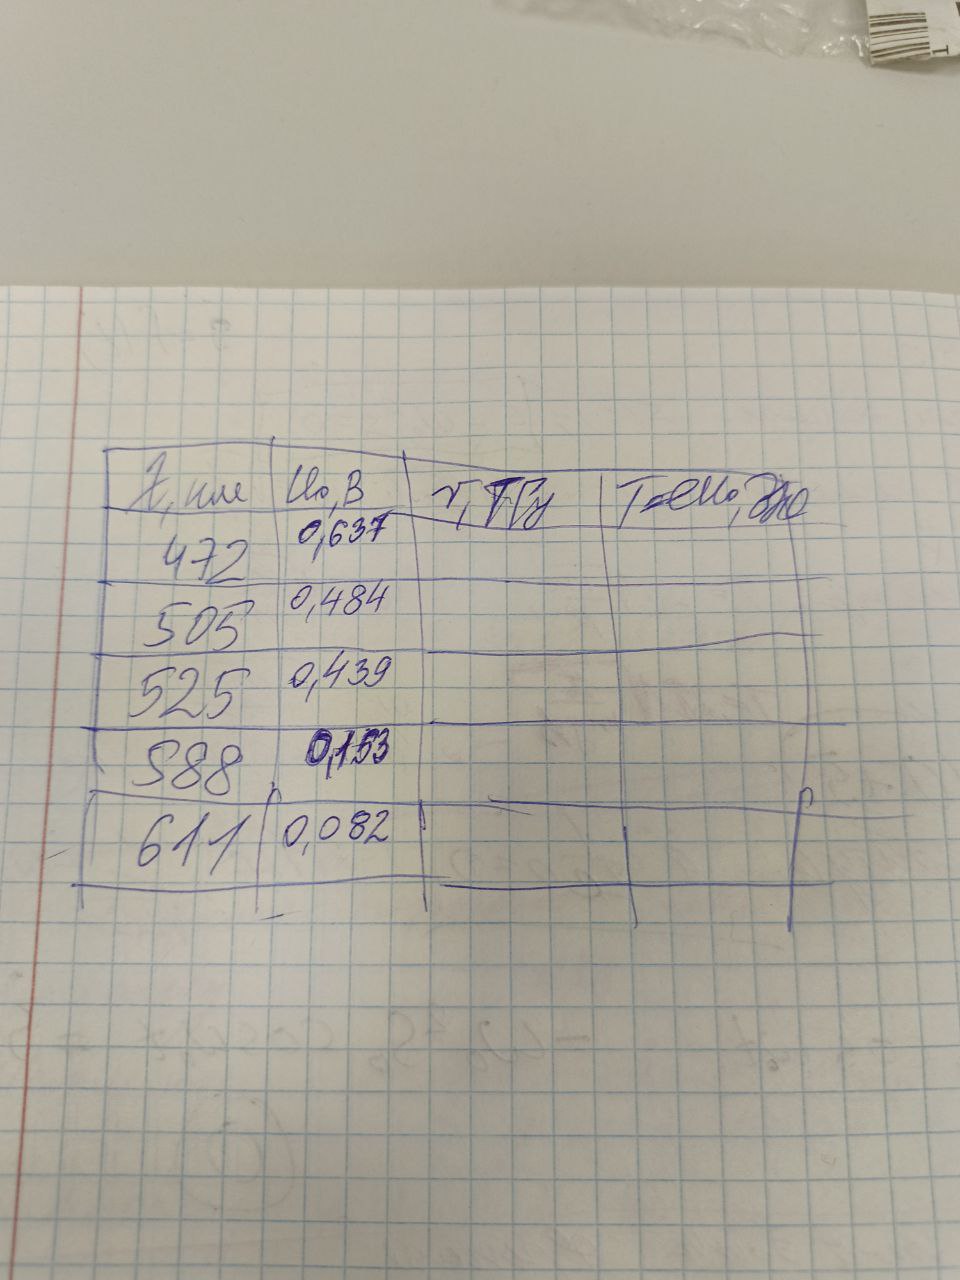 λ, нм U₀, В ν, ТГц T=eU₀, Дж
472 0,637
505 0,484
525 0,439
588 0,153
611 0,082